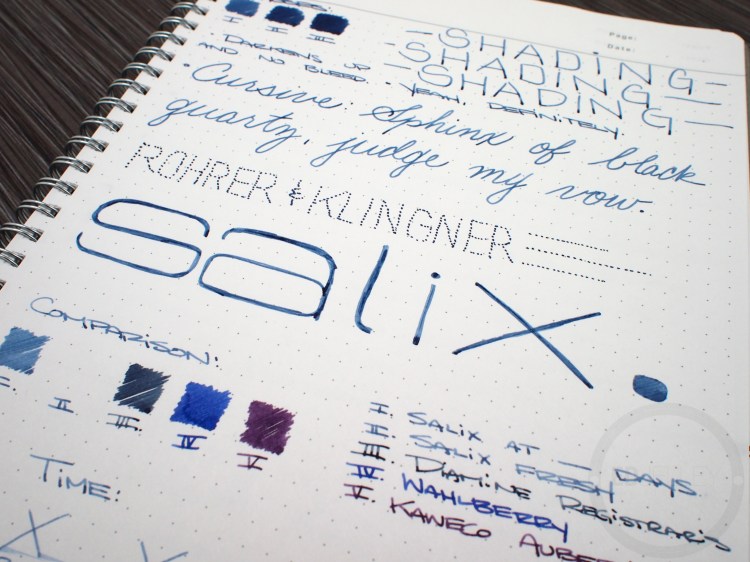 Page:
Date:
I II III
- SHADING -
- SHADING -
- SHADING -
· DARKENS UP
AND NO BLEED.
· YEAH, DEFINITELY
· Cursive: Sphinx of black
quartz, judge my vow.
ROHRER & KLINGNER
Salix.
COMPARISON:
II III IV V
I. SALIX AT — DAYS
II. SALIX FRESH
III. DIAMINE REGISTRARIS
IV. WAHLBERRY
V. KAWECO AUBE
TIME:
X X